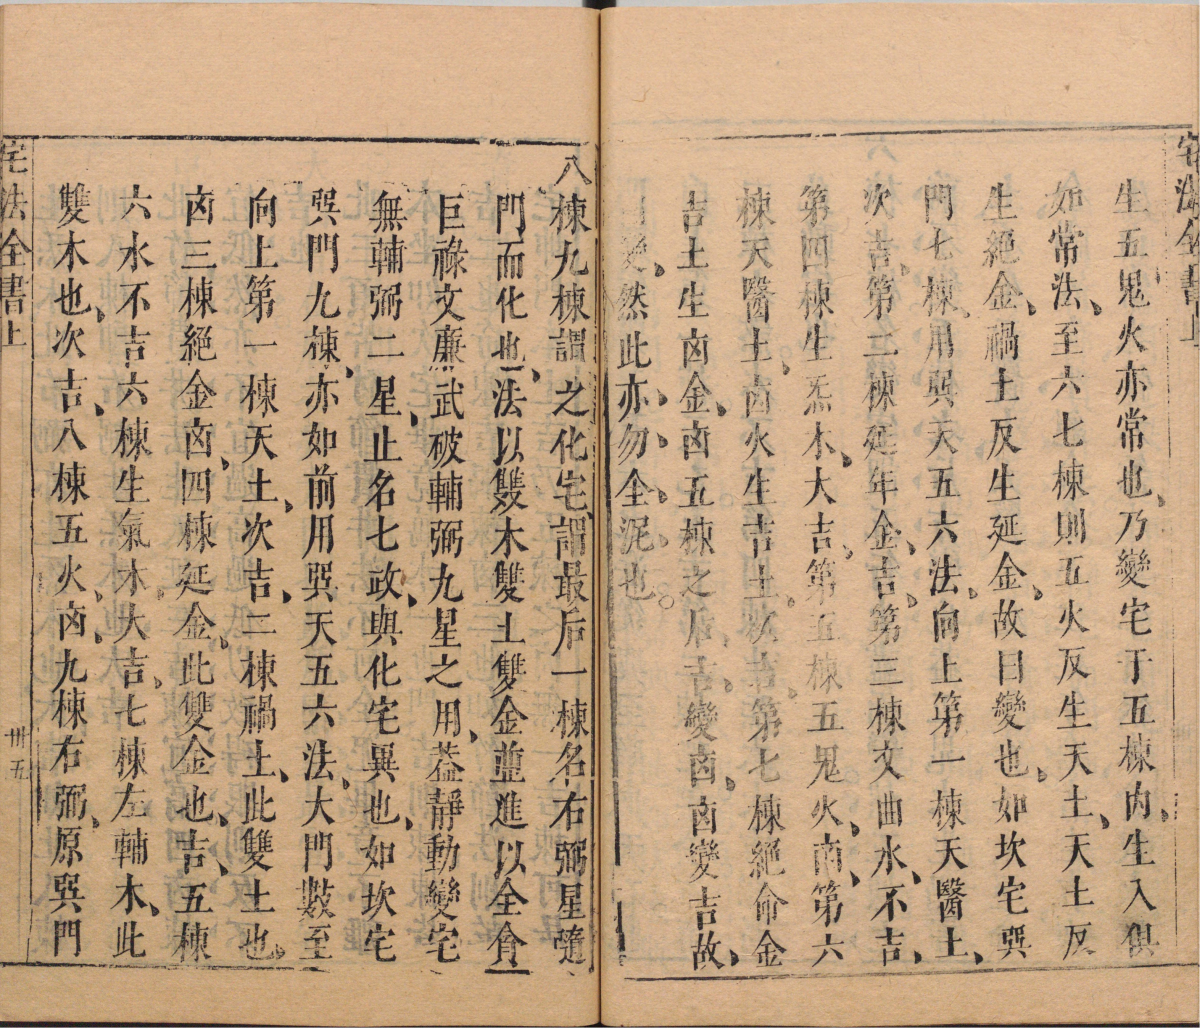 宅法全書上
生五鬼火亦常也乃變宅于五棟內生入俱
如常法至六七棟則五火反生天土天土反
生絕金禍土反生延金故曰變也如坎宅巽
門七棟用巽天五六法向上第一棟天醫土
次吉第二棟延年金吉第三棟文曲水不吉
第四棟生炁木大吉第五棟五鬼火卤第六
棟天醫土卤火生吉土次吉第七棟絕命金
吉土生卤金卤五棟之后吉變卤卤變吉故
變然此亦勿全泥也
八棟九棟謂之化宅謂最后一棟名右弼星隨
門而化也法以雙木雙土雙金並進以全貪
巨祿文廉武破輔弼九星之用葢靜動變宅
無輔弼二星止名七政與化宅異也如坎宅
巽門九棟亦如前用巽天五六法大門數至
向上第一棟天土次吉二棟禍土此雙土也
卤三棟絕金卤四棟延金此雙金也吉五棟
六水不吉六棟生氣木大吉七棟左輔木此
雙木也次吉八棟五火卤九棟右弼原巽門
宅法全書上
卅五